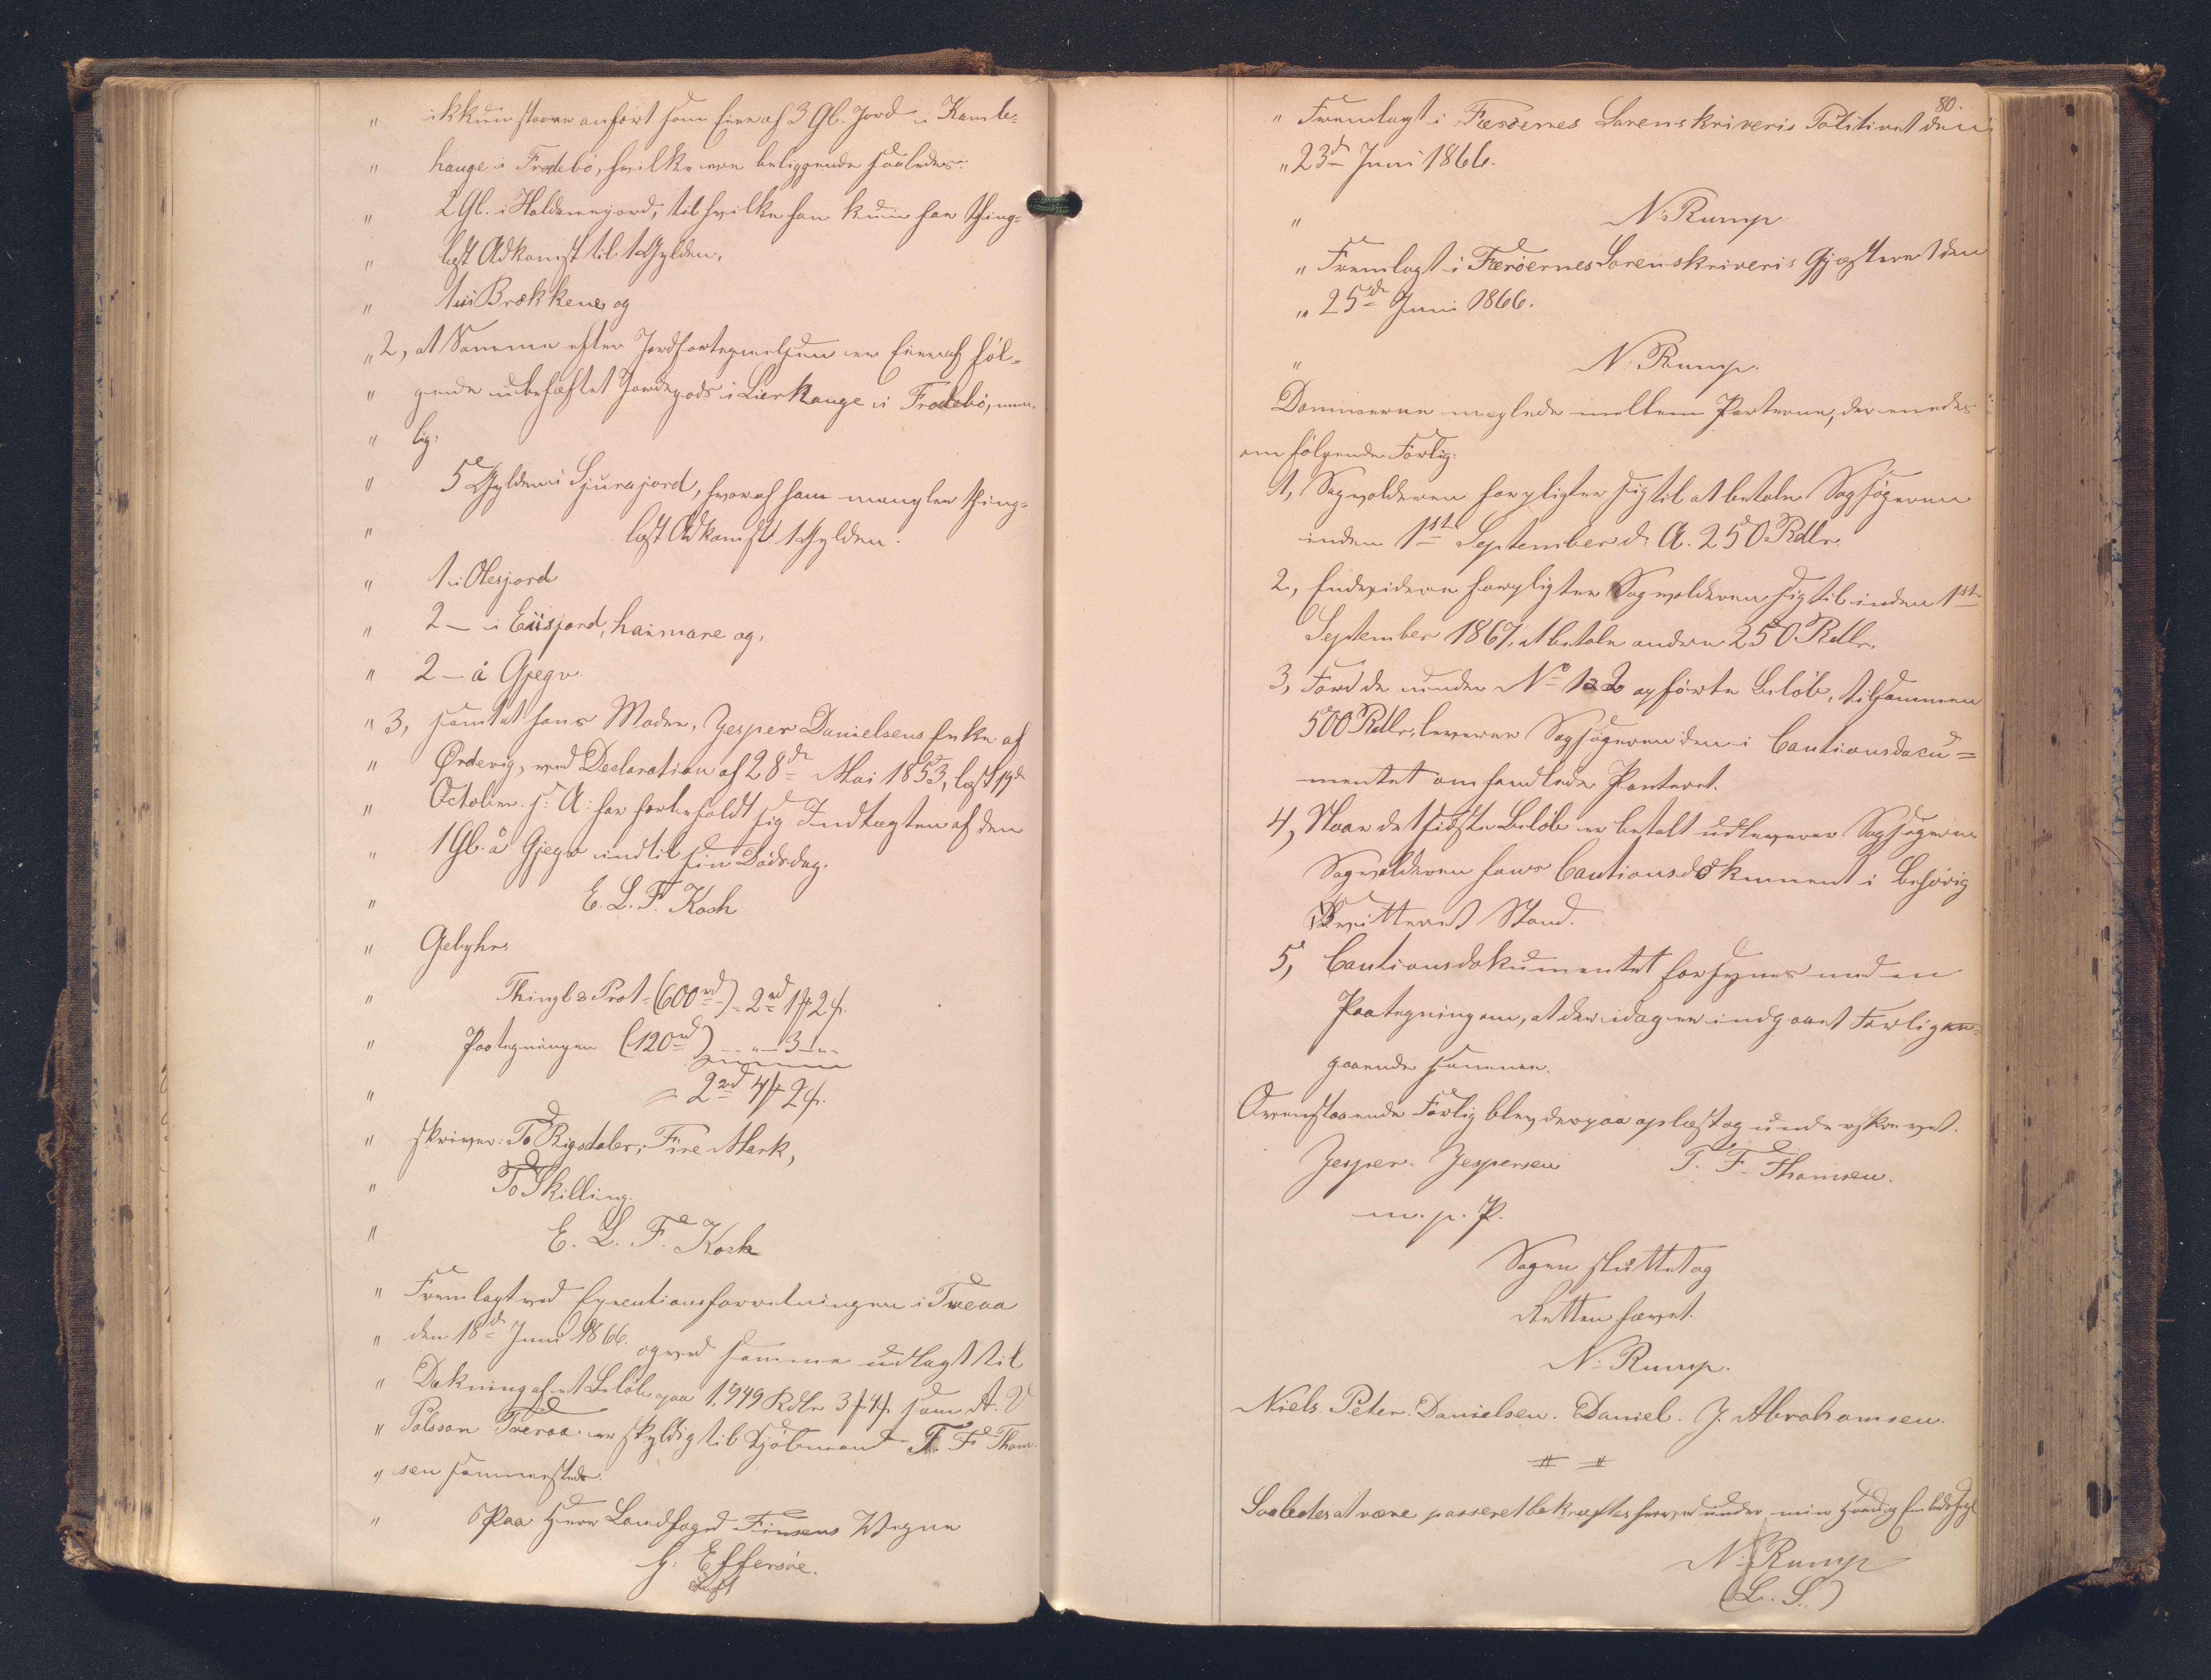 " ikkun staaer anført som Eier af 3 Gl. Jord i Kamle-
" hauge i Frodebø, hvilke ere beliggende saaledes:
" 2 Gl. i Haldarsjord, til hvilke han kun har thing-
" læst Adkomst til 1 Gylden,
" 1 - i Brekkene og
" 2, at Samme efter Jordfortegnelsen er Eier af føl-
" gende ubehæftet Jordegods i Lierhauge i Frodebø, nem-
" lig:
" 5 Gylden i Sjurajord, hvoraf ham mangler thing-
" læst Adkomst 1 Gylden.
" 1 i Olesjord
" 2 — i Eiisjord, haimare og,
" 2 — á Gjegv.
" 3, samt at hans Moder, Jesper Danielsens Enke af
" Ørdevig, ved Declaration af 28de Mai 1853, læst 19de
" October s: A: har forbeholdt sig Indtægten af den
" 1 Gl. á Gjegv indtil sin Dødsdag.
" E. L. F. Koch
" Gebyhr:
" Thingl & Prot. (600 rd) = 2 rd 1 ф 2 ß.
" Paategningen (120 rd) - " — 3 - " -
" = 2 rd 4 ф 2 ß.
" skriver: To Rigsdaler, Fire Mark,
" To Skilling.
" E. L. F. Koch
" Fremlagt ved Executionsforretningen i Tveraa
" den 18de Juni 1866. og ved samme udlagt til
" Dækning af et Beløb paa 1,949 Rdlr 3 ф 4 ß som A. V
" Polsson Tveraa er skyldig til Kjøbmand T. F. Thom-
" sen sammesteds.
" Paa Herr Landfoged Finsens Vegne
H. Effersøe.
80.
" Fremlagt i Færøernes Sorenskriveris Politiret den
" 23de Juni 1866.
" N. Rump.
" Fremlagt i Færøernes Sorenskriveris Gjæsteret den
" 25de Juni 1866.
" N. Rump.
Dommeren mæglede mellem Parterne, der enedes
om følgende Forlig:
1, Sagvolderen forpligter sig til at betale Sagsøgeren
inden 1ste September d: A. 250 Rdlr.
2, Endvidere forpligter Sagvolderen sig til inden 1ste
September 1867, at betale anden 250 Rdlr.
3, For de under No 1 & 2 opførte Beløb, tilsammen
500 Rdlr, leverer Sagsøgeren den i Cautionsdocu=
mentet omhandlede Panteret.
4, Naar det sidste Beløb er betalt udleverer Sagsøgeren
Sagvolderen hans Cautionsdokument i behørig
qvitteret Stand.
5, Cautionsdokumentet forsynes med en
Paategning om, at der idag er indgaaet Forlig an-
gaaende samme.
Ovenstaaende Forlig blev derpaa oplæst og underskrevet.
Jesper. Jespersen T. F. Thomsen.
m. p. P.
Sagen sluttet og
Retten hævet.
N. Rump.
Niels. Peter. Danielsen. Daniel. J. Abrahamsen.
Saaledes at være passeret bekræftes herved under min Haand og Embedssegl
N. Rump
(L. S.)